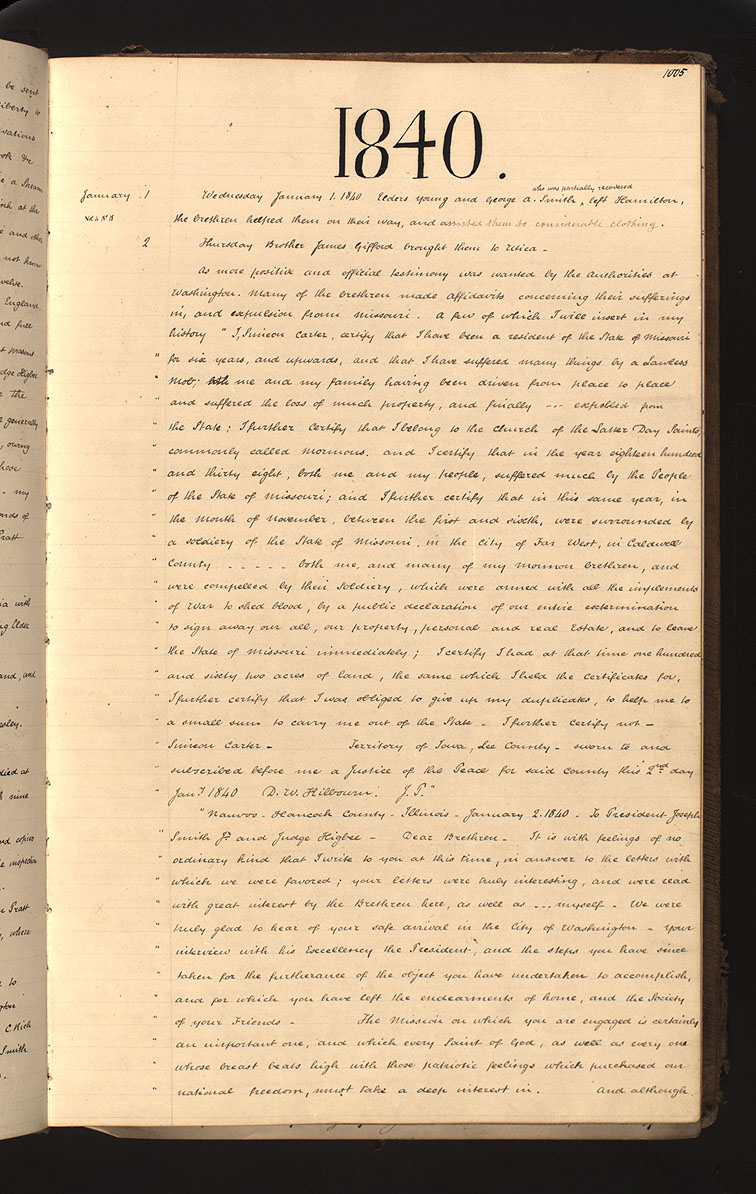 be sent
liberty to
vations
ook &c
e a Steam
ish at the
e and other
not know
velve.
England
nd full
t presents
dge Higbee
r the
generally
, owing
hose
- my
onds of
Pratt
ia with
ng Elder
and, and
died at
k nine
nd copies
Pratt
, where
to
gton
C. Rich
Smith
1005
1840.
who was partially recovered
January 1 Wednesday January 1. 1840 Elders Young and George A. Smith, left Hamilton,
the brethren helped them on their way, and assisted them to considerable clothing.
2 Thursday Brother James Gifford brought them to Utica -
As more positive and official testimony was wanted by the Authorities at
Washington. Many of the brethren made affidavits concerning their sufferings
in, and expulsion from Missouri. A few of which I will insert in my
history " I, Simeon Carter, certify that I have been a resident of the State of Missouri
" for six years, and upwards, and that I have suffered many things by a Lawless
" Mob; both me and my family having been driven from place to place
" and suffered the loss of much property, and finally -- expelled from
" the State; I further certify that I belong to the Church of the Latter Day Saints
" commonly called Mormons. and I certify that in the year eighteen hundred
" and thirty eight, both me and my people, suffered much by the People
" of the State of Missouri; and I further certify that in this same year, in
" the month of November, between the first and sixth, were surrounded by
" a soldiery of the State of Missouri, in the City of Far West, in Caldwell
" County - - - - - both me, and many of my mormon brethren, and
" were compelled by their Soldiery, which were armed with all the implements
" of War to shed blood, by a public declaration of our entire extermination
" to sign away our all, our property, personal and real Estate, and to leave
" the State of Missouri immediately; I certify I had at that time one hundred
" and sixty two acres of land, the same which I held the certificates for,
" I further certify that I was obliged to give up my duplicates, to help me to
" a small sum to carry me out of the State - I further certify not -
" Simeon Carter - Territory of Iowa, Lee County - sworn to and
" subscribed before me a Justice of the Peace for said County this 2nd day
" Jany 1840 D. W. Kilbourn. J. P."
" Nauvoo - Hancock County - Illinois - January 2. 1840 - To President Joseph
" Smith Jr. and Judge Higbee - Dear Brethren - It is with feelings of no
" ordinary kind that I write to you at this time, in answer to the letters with
" which we were favored; your letters were truly interesting, and were read
" with great interest by the Brethren here, as well as --- myself - We were
" truly glad to hear of your safe arrival in the City of Washington - Your
" interview with his Excellency the President, and the steps you have since
" taken for the furtherance of the object you have undertaken to accomplish,
" and for which you have left the endearments of home, and the Society
" of your Friends - The Mission on which you are engaged is certainly
" an important one, and which every Saint of God, as well as every one
" whose breast beats high with those patriotic feelings which purchased our
" national freedom, must take a deep interest in. And although